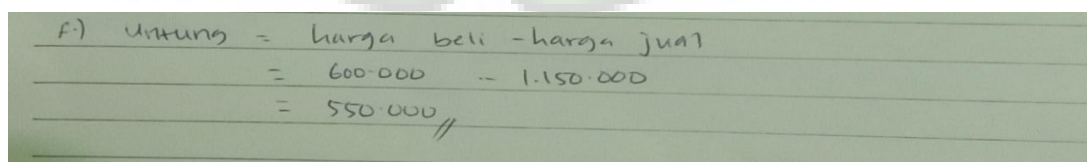 f.) Untung = harga beli - harga jual
= 600.000 - 1.150.000
= 550.000 //